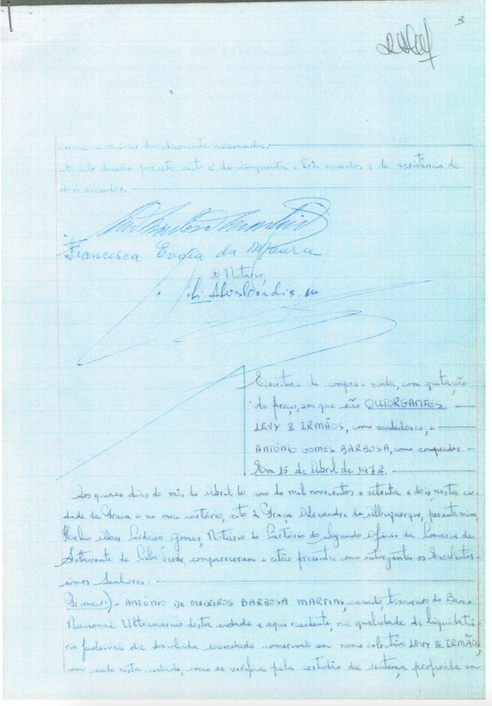 3
O selo devido por este acto é de cinquenta e três escudos e de assistência de
dois escudos.
Francisca Evora da Moura
O Notário,
Escritura de compra e venda, com quitação
de preço, em que são OUTORGANTES
LEVY & IRMÃOS, como vendedores, e
ANTÓNIO GOMES BARBOSA, como comprador.
Em 15 de Abril de 1972.
Aos quinze dias do mês de Abril do ano de mil novecentos e setenta e dois nesta ci-
dade da Praia e no meu cartório, sito à Praça Alexandre de Albuquerque, perante mim
Cordeiro Gomes, Notário do Cartório do Segundo Ofício da Comarca de
Sotavento de Cabo Verde, compareceram e estão presentes como outorgantes os Excelentís-
simos Senhores:
Primeiro) - ANTÓNIO DE MEDEIROS BARBOSA MARTINS, casado, tesoureiro do Banco
Nacional Ultramarino desta cidade e aqui residente, na qualidade de liquidatá-
rio judicial da dissolvida sociedade comercial em nome colectivo LEVY & IRMÃOS,
com sede nesta cidade, como se verifica pela certidão da sentença proferida em